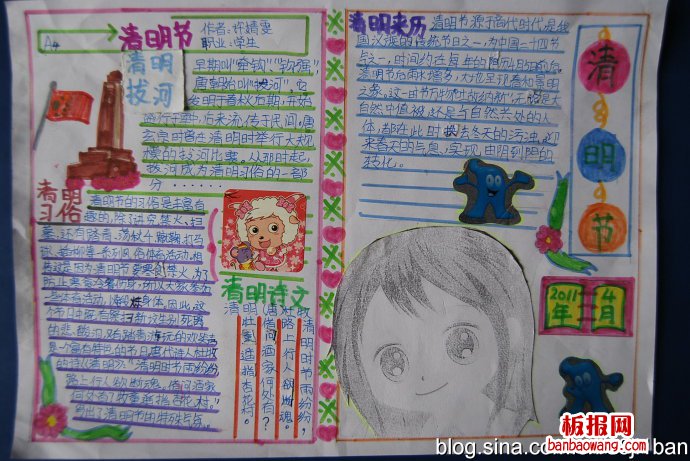 A4
清明节
作者:许婧雯
职业:学生
清明
拔河
早期叫“牵钩”“钦强”，
唐朝始叫“拔河”，
发明于春秋后期,开始
盛行于军中,后来流传于民间,唐
玄宗时曾在清明时举行大规
模的拔河比赛。从那时起,
拔河成为清明习俗的一部
分……
清明
习俗
清明节的习俗是丰富有
趣的,除了讲究禁火、扫
墓,还有踏青、荡秋千、蹴鞠、打马
球、插柳等一系列风俗体育活动,相
传这是因为清明节要寒食禁火,为了
防止寒食冷餐伤身,所以大家参加
体育活动,锻炼身体。因此,这
个节日中既有祭扫新坟生别死离
的悲酸泪,又有踏青游玩的欢笑声,
是个富有特色的节日。唐代诗人杜牧
的诗《清明》:“清明时节雨纷纷,
路上行人欲断魂。借问酒家
何处有?牧童遥指杏花村。”
写出了清明节的特殊气氛。
清明诗文
清明
(唐)杜牧
清明时节雨纷纷,
路上行人欲断魂。
借问酒家何处有?
牧童遥指杏花村。
清明来历
清明节源于商代时代,是我
国汉族的传统节日之一,为中国二十四节
气之一,时间约在每年的阳历4月5日前后。
清明节后雨水增多,大地呈现春和景明
之象。这一时节万物“吐故纳新”,无论是大
自然中的植被,还是与自然共处的人
体,都在此时换去冬天的污浊,迎
来春天的气息,实现由阴到阳的
转化。
清
明
节
2011年
4月
板报网
banbaowang.com
blog.sina.co